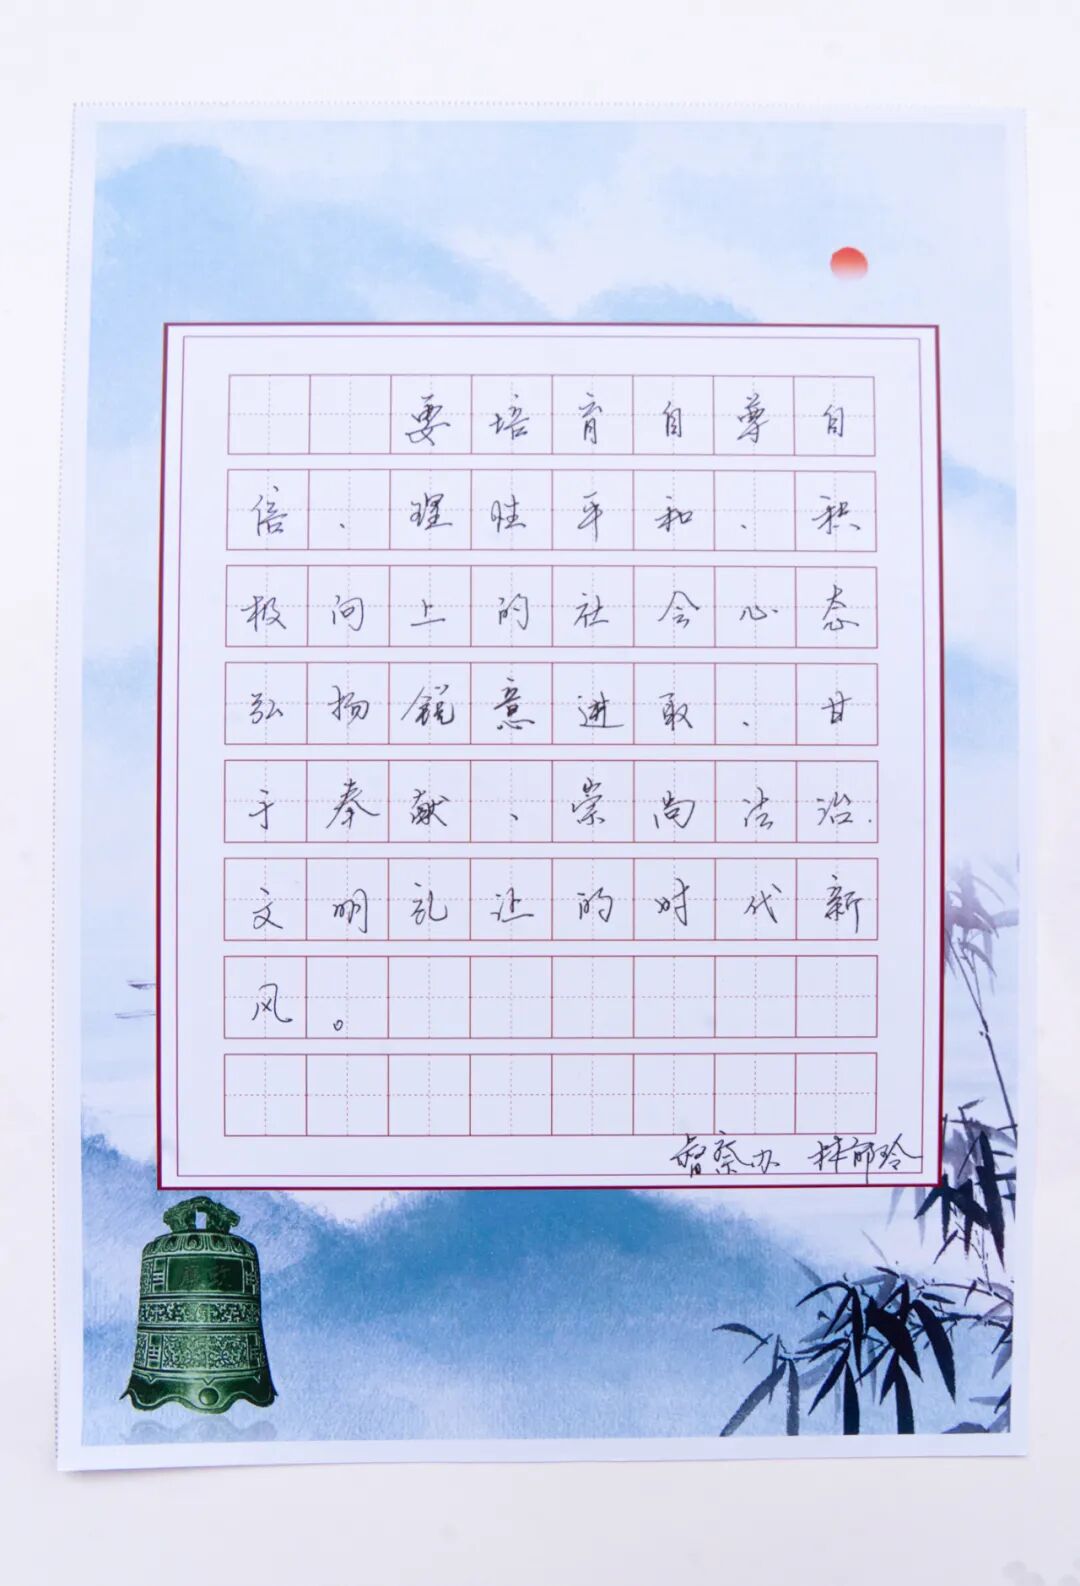 要培育自尊自
信、理性平和、积
极向上的社会心态
弘扬锐意进取、甘
于奉献、崇尚法治、
文明礼让的时代新
风。
督察办